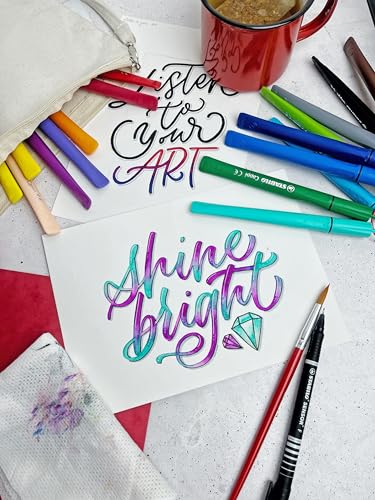 Listen
to
Your
ART
STABILO Cappi CE
shine
bright
STABILO SENSOR F